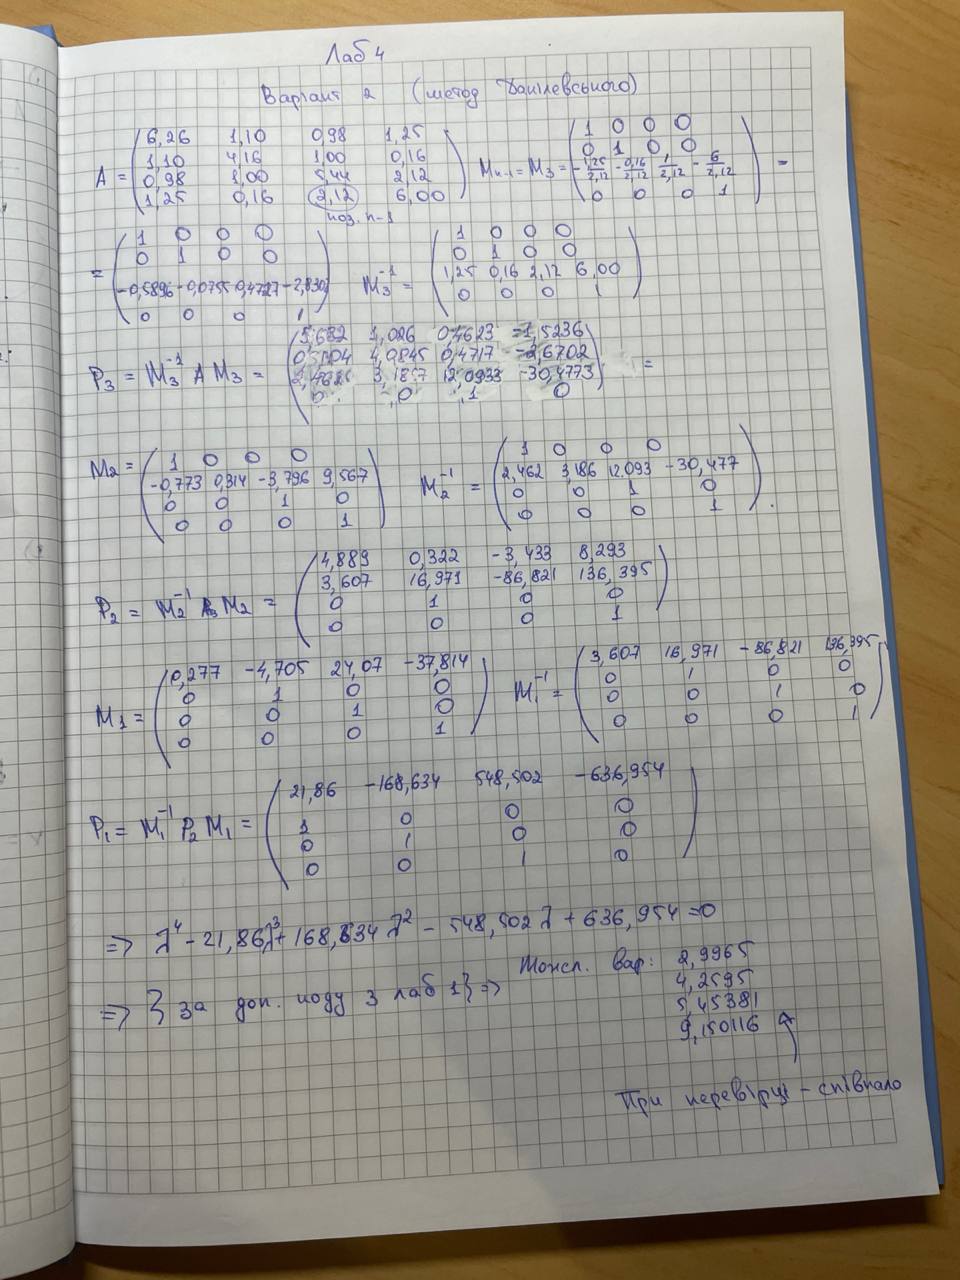 Лаб 4
Варіант 2 (метод Данілевського)
A = (6,26 1,10 0,98 1,25
1,10 4,16 1,00 0,16
0,98 1,00 5,44 2,12
1,25 0,16 2,12 6,00)
поз. n-1
Mn-1 = M3 = (1 0 0 0
0 1 0 0
-1,25/2,12 -0,16/2,12 1/2,12 -6/2,12
0 0 0 1) =
= (1 0 0 0
0 1 0 0
-0,5896 -0,0755 0,4727 -2,830
0 0 0 1)
M3⁻¹ = (1 0 0 0
0 1 0 0
1,25 0,16 2,12 6,00
0 0 0 1)
P3 = M3⁻¹ A M3 = (5,682 1,026 0,4623 -1,5236
4,0845 0,4717 -2,6702
3,1857 12,0933 -30,4773
0 0 1 0) =
M2 = (1 0 0 0
-0,773 0,314 -3,796 9,567
0 0 1 0
0 0 0 1)
M2⁻¹ = (1 0 0 0
2,462 3,186 12.093 -30,477
0 0 1 0
0 0 0 1).
P2 = M2⁻¹ P3 M2 = (4,889 0,322 -3,433 8,293
3,607 16,971 -86,821 136,395
0 1 0 0
0 0 0 1)
M1 = (0,277 -4,705 24,07 -37,814
0 1 0 0
0 0 1 0
0 0 0 1)
M1⁻¹ = (3,607 16,971 -86,821 136,395
0 1 0 0
0 0 1 0
0 0 0 1)
P1 = M1⁻¹ P2 M1 = (21,86 -168,634 548,502 -636,954
1 0 0 0
0 1 0 0
0 0 1 0)
=> λ⁴ - 21,86λ³ + 168,634λ² - 548,502λ + 636,954 = 0
=> } за доп. коду з лаб 1} =>
вар: 2,9965
4,2595
5,45381
9,150116
При перевірці - співпало